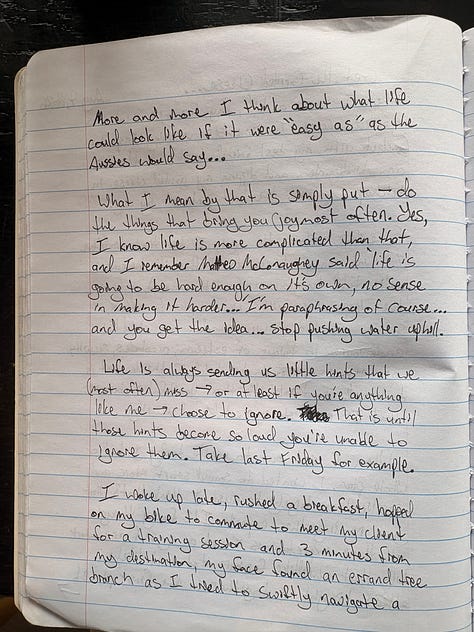 More and more I think about what life
could look like if it were "easy as" as the
Aussies would say...
What I mean by that is simply put — do
the things that bring you joy most often. Yes,
I know life is more complicated than that,
and I remember McConaughey said 'life is
going to be hard enough on it's own, no sense
in making it harder... I'm paraphrasing of course...
and you get the idea... stop pushing water uphill.
Life is always sending us little hints that we
(most often) miss → or at least if you're anything
like me → choose to ignore. That is until
those hints become so loud you're unable to
ignore them. Take last Friday for example.
I woke up late, rushed a breakfast, hopped
on my bike to commute to meet my client
for a training session and 3 minutes from
my destination, my face found an errand tree
branch as I tried to swiftly navigate a